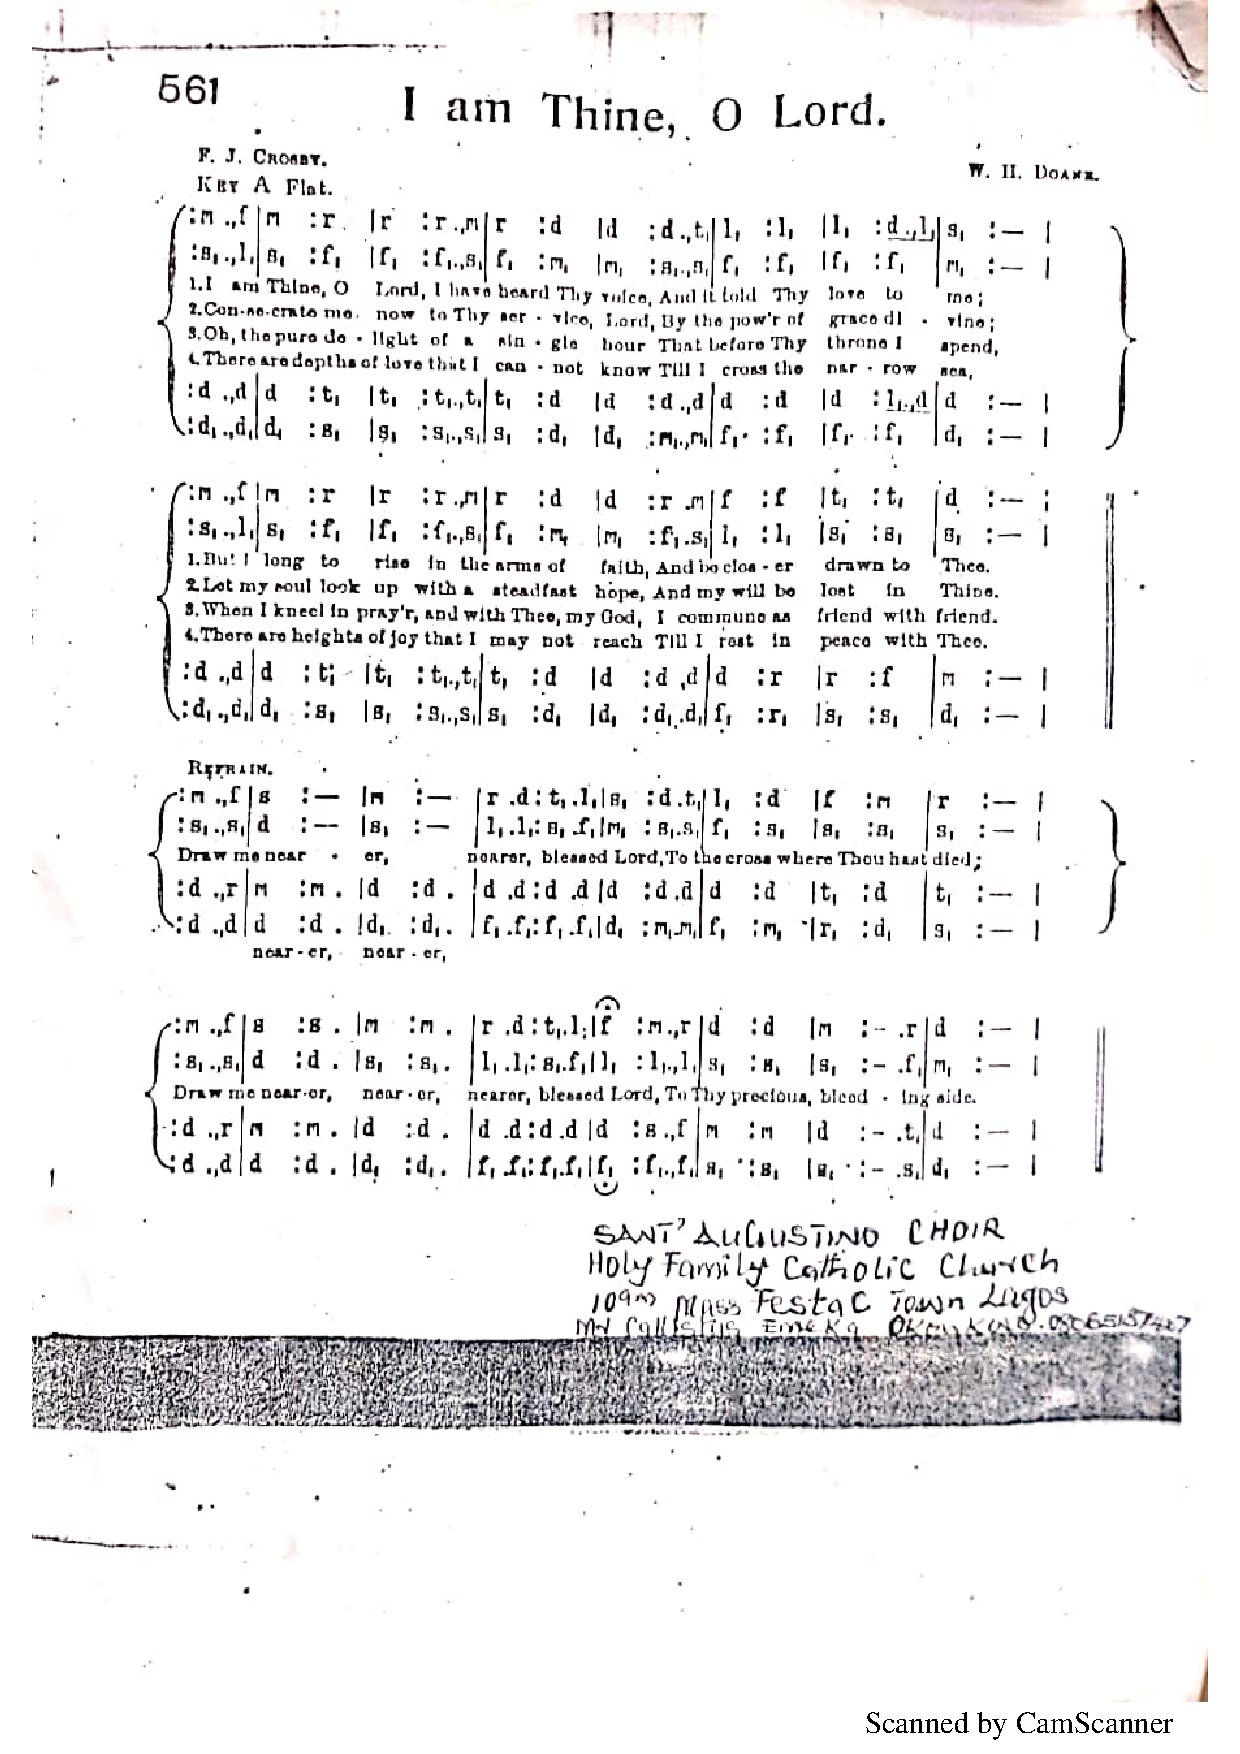 561
I am Thine, O Lord.
F. J. CROSBY.
W. H. DOANE.
KEY A Flat.
:m .,f | m :r | r :r .,m | r :d | d :d .,t, | l, :l, | l, :d .,l, | s, :— |
:s, .,l, | s, :f, | f, :f, .,s, | f, :m, | m, :s, .,s, | f, :f, | f, :f, | m, :— |
1.I am Thine, O Lord, I have heard Thy voice, And it told Thy love to me;
2.Con-se-crate me now to Thy ser - vice, Lord, By the pow'r of grace di - vine;
3.Oh, the pure de - light of a sin - gle hour That before Thy throne I spend,
4.There are depths of love that I can - not know Till I cross the nar - row sea,
:d .,d | d :t, | t, :t, .,t, | t, :d | d :d .,d | d :d | d :l, .,d | d :— |
:d, .,d, | d, :s, | s, :s, .,s, | s, :d, | d, :m, .,m, | f, :f, | f, :f, | d, :— |
:m .,f | m :r | r :r .,m | r :d | d :r .m | f :f | t, :t, | d :— |
:s, .,l, | s, :f, | f, :f, .,s, | f, :m, | m, :f, .s, | l, :l, | s, :s, | s, :— |
1.But I long to rise in the arms of faith, And be clos - er drawn to Thee.
2.Let my soul look up with a steadfast hope, And my will be lost in Thine.
3.When I kneel in pray'r, and with Thee, my God, I commune as friend with friend.
4.There are heights of joy that I may not reach Till I rest in peace with Thee.
:d .,d | d :t, | t, :t, .,t, | t, :d | d :d .d | d :r | r :f | m :— |
:d, .,d, | d, :s, | s, :s, .,s, | s, :d, | d, :d, .d, | f, :r, | s, :s, | d, :— |
REFRAIN.
:m .,f | s :— | m :— | r .d :t, .l, | s, :d .t, | l, :d | f :m | r :— |
:s, .,s, | d :— | s, :— | l, .l, :s, .f, | m, :s, .s, | f, :s, | s, :s, | s, :— |
Draw me near - er, nearer, blessed Lord, To the cross where Thou hast died;
:d .,r | m :m . | d :d . | d .d :d .d | d :d .d | d :d | t, :d | t, :— |
:d .,d | d :d . | d, :d, . | f, .f, :f, .f, | d, :m, .m, | f, :m, | r, :d, | s, :— |
near-er, near-er,
:m .,f | s :s . | m :m . | r .d :t, .l, | f :m .,r | d :d | m :- .r | d :— |
:s, .,s, | d :d . | s, :s, . | l, .l, :s, .f, | l, :l, .,l, | s, :s, | s, :- .f, | m, :— |
Draw me near-er, near-er, nearer, blessed Lord, To Thy precious, bleed - ing side.
:d .,r | m :m . | d :d . | d .d :d .d | d :s .,f | m :m | d :- .t, | d :— |
:d .,d | d :d . | d, :d, . | f, .f, :f, .f, | f, :f, .,f, | s, :s, | s, :- .s, | d, :— |
SANT' AUGUSTINO CHOIR
Holy Family Catholic Church
Mass Festac Town Lagos
Scanned by CamScanner